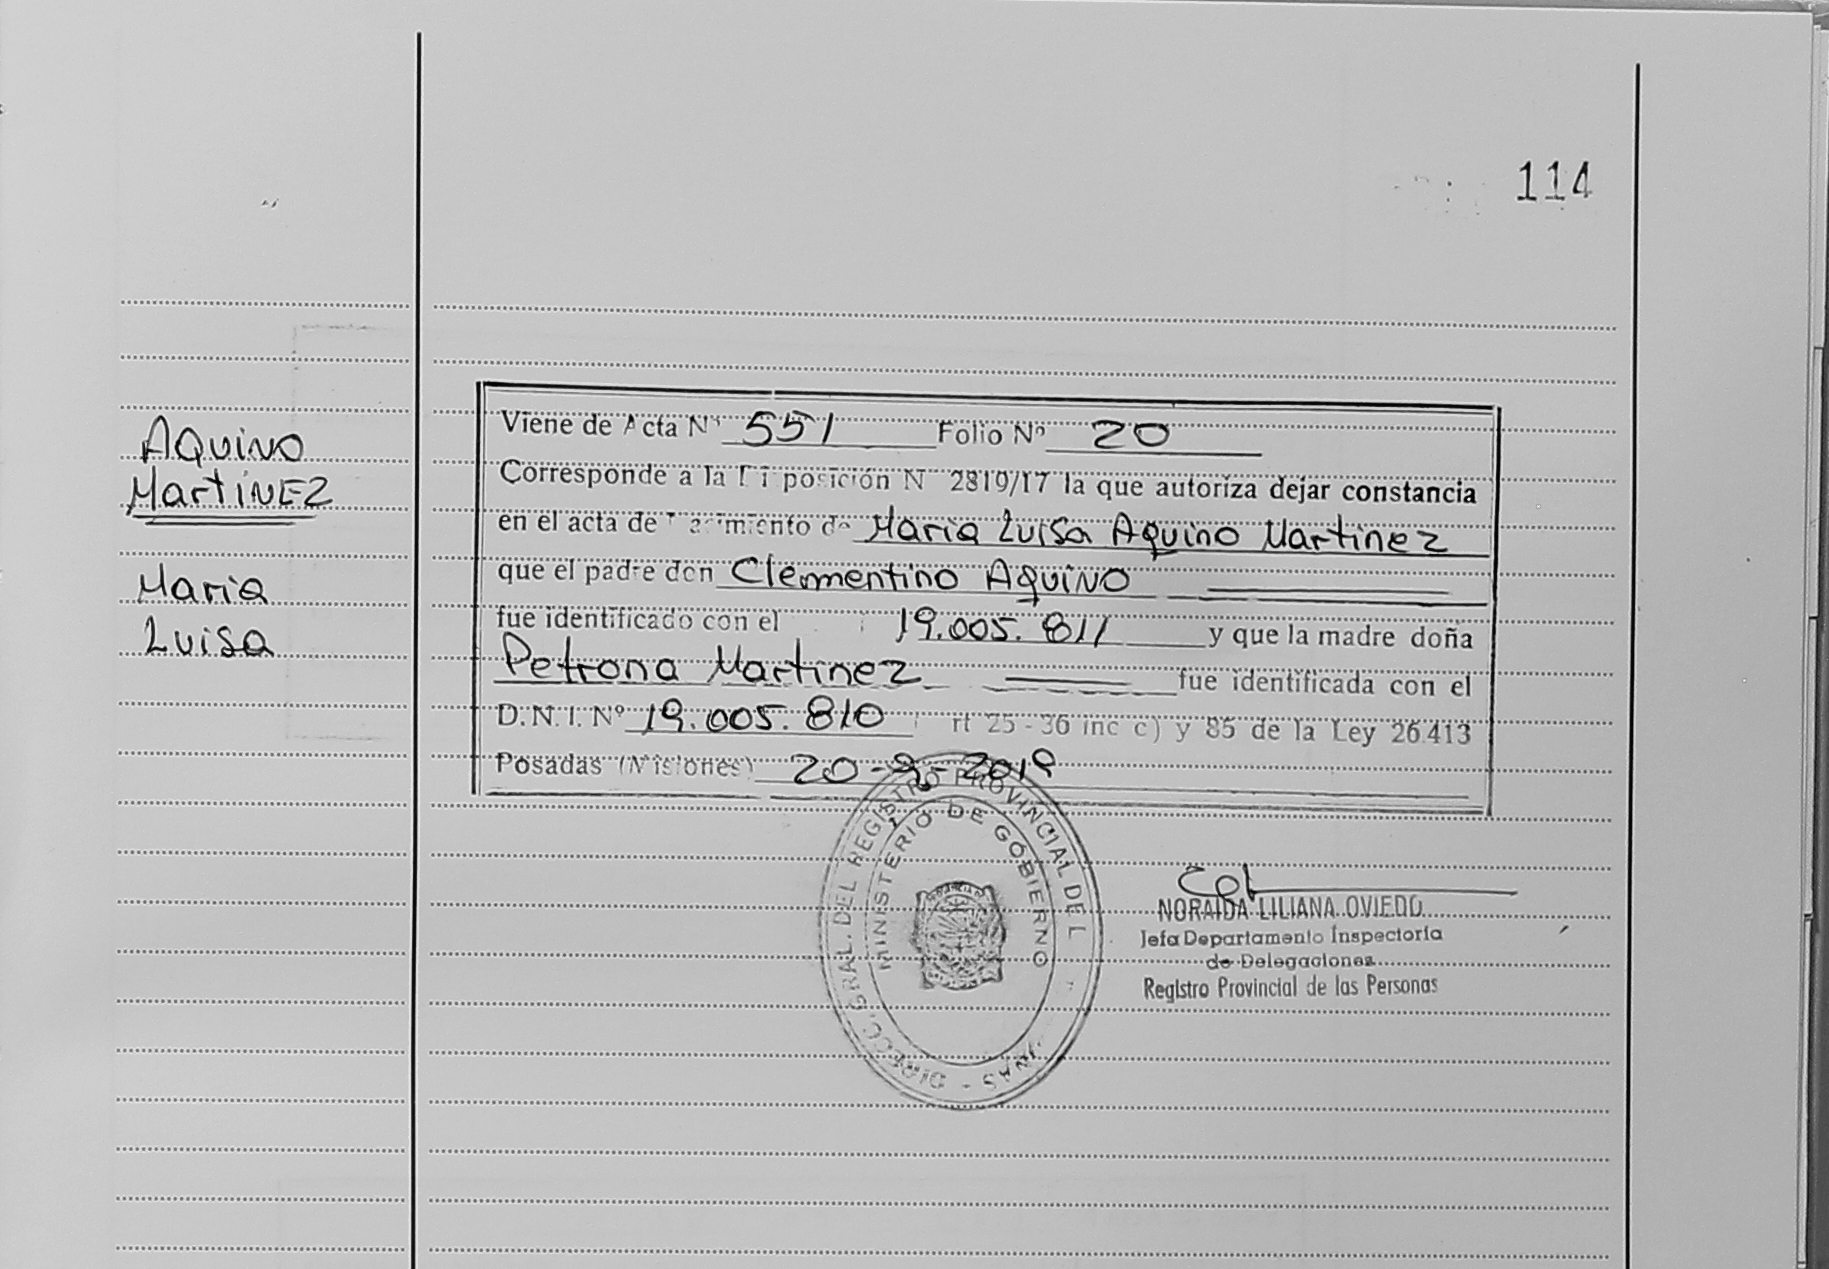 114
AQUINO
MartINEZ
Maria
Luisa
Viene de Acta Nº 551 Folio Nº 20
Corresponde a la Disposición Nº 2819/17 la que autoriza dejar constancia
en el acta de nacimiento de Maria Luisa Aquino Martinez
que el padre don Clementino AQUINO
fue identificado con el 19.005.811 y que la madre doña
Petrona Martinez fue identificada con el
D.N.I. Nº 19.005.810 rt 25 - 36 inc c) y 85 de la Ley 26.413
Posadas (Misiones) 20-9-2019
DIRECC. GRAL. DEL REGISTRO PROVINCIAL DE L
NAS -
MINISTERIO DE GOBIERNO
NORAIDA LILIANA OVIEDO
Jefa Departamento Inspectoría
de Delegaciones
Registro Provincial de las Personas